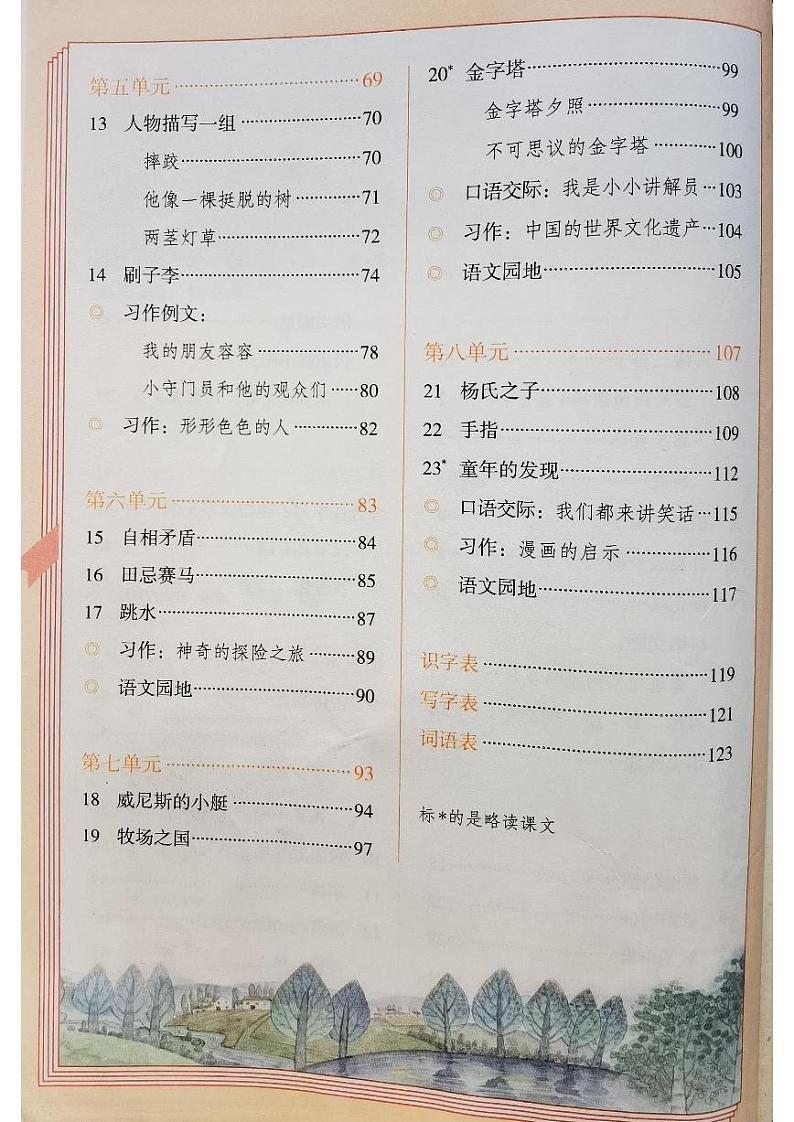 第五单元……69
13 人物描写一组……70
摔跤……70
他像一棵挺脱的树……71
两茎灯草……72
14 刷子李……74
◎ 习作例文：
我的朋友容容……78
小守门员和他的观众们……80
◎ 习作：形形色色的人……82
第六单元……83
15 自相矛盾……84
16 田忌赛马……85
17 跳水……87
◎ 习作：神奇的探险之旅……89
◎ 语文园地……90
第七单元……93
18 威尼斯的小艇……94
19 牧场之国……97
20* 金字塔……99
金字塔夕照……99
不可思议的金字塔……100
◎ 口语交际：我是小小讲解员……103
◎ 习作：中国的世界文化遗产……104
◎ 语文园地……105
第八单元……107
21 杨氏之子……108
22 手指……109
23* 童年的发现……112
◎ 口语交际：我们都来讲笑话……115
◎ 习作：漫画的启示……116
◎ 语文园地……117
识字表……119
写字表……121
词语表……123
标*的是略读课文